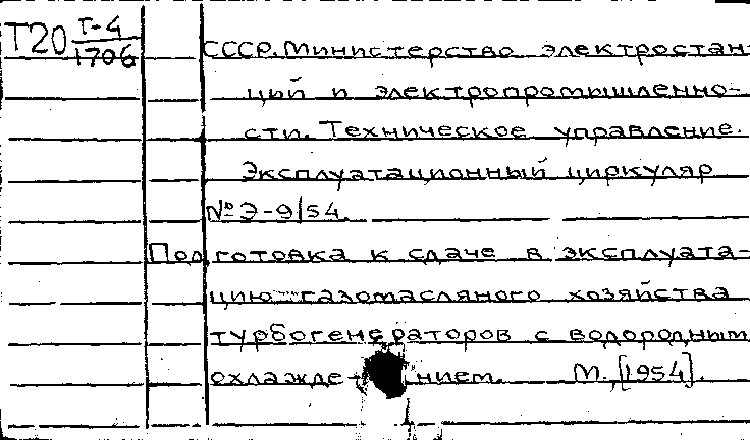 Т20 Т-4/1706
СССР. Министерство электростан-
ций и электропромышленно-
сти. Техническое управление.
Эксплуатационный циркуляр
№ Э-9/54.
Подготовка к сдаче в эксплуата-
цию газомасляного хозяйства
турбогенераторов с водородным
охлажде- нием. М., [1954].